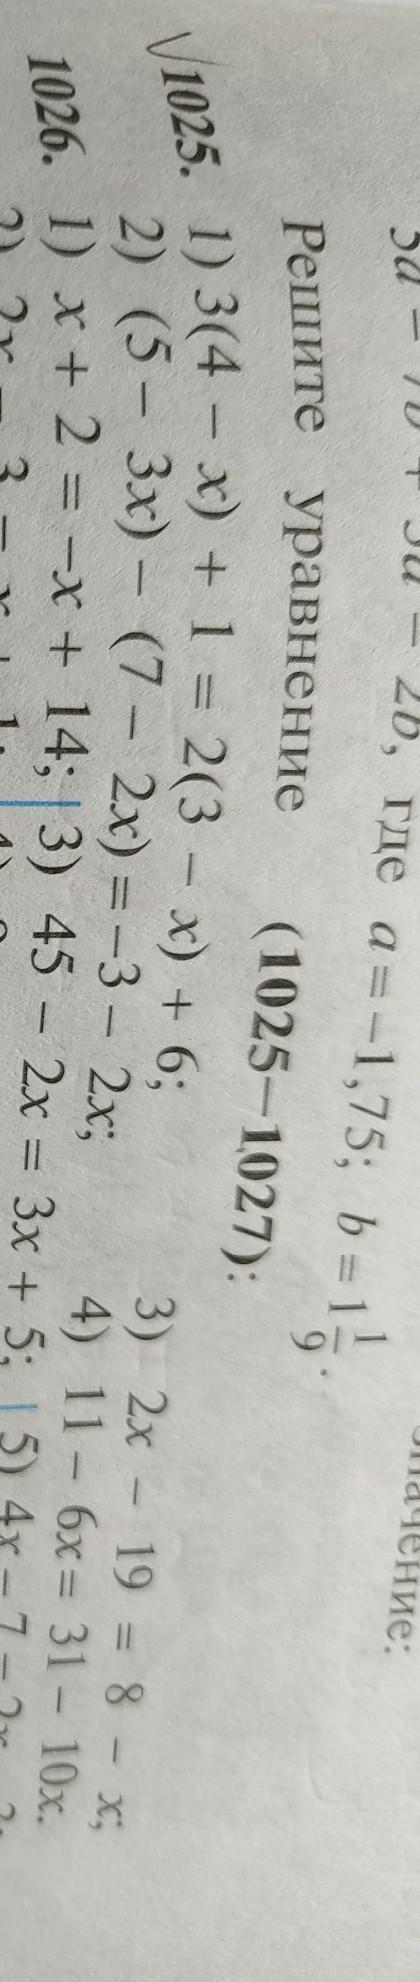 значение:
где a = –1,75; b = 1 1/9.
Решите уравнение (1025–1027):
√1025. 1) 3(4 – x) + 1 = 2(3 – x) + 6; 3) 2x – 19 = 8 – x;
2) (5 – 3x) – (7 – 2x) = –3 – 2x; 4) 11 – 6x = 31 – 10x.
1026. 1) x + 2 = –x + 14; 3) 45 – 2x = 3x + 5; 5) 4x – 7 =